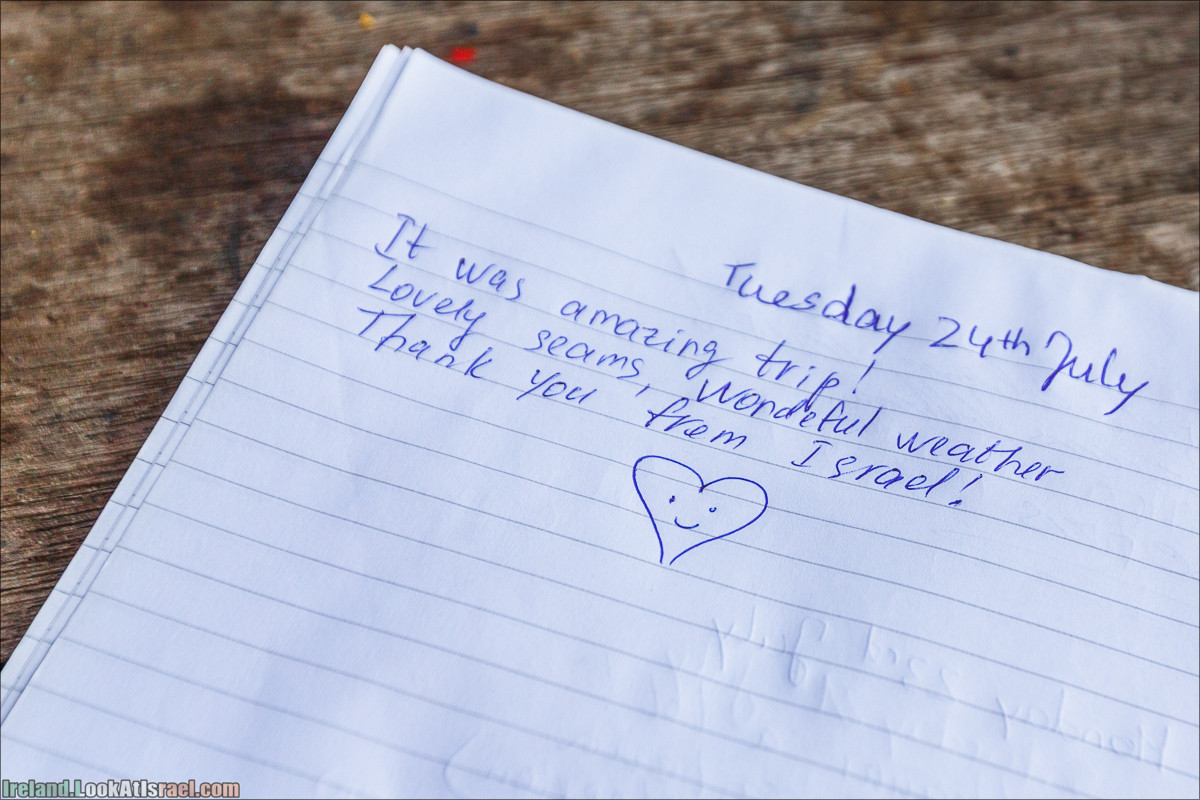 Tuesday 24th July
It was amazing trip!
Lovely seams, wondeful weather
Thank you from Israel!
Monday 23rd July
Ireland.LookAtIsrael.com